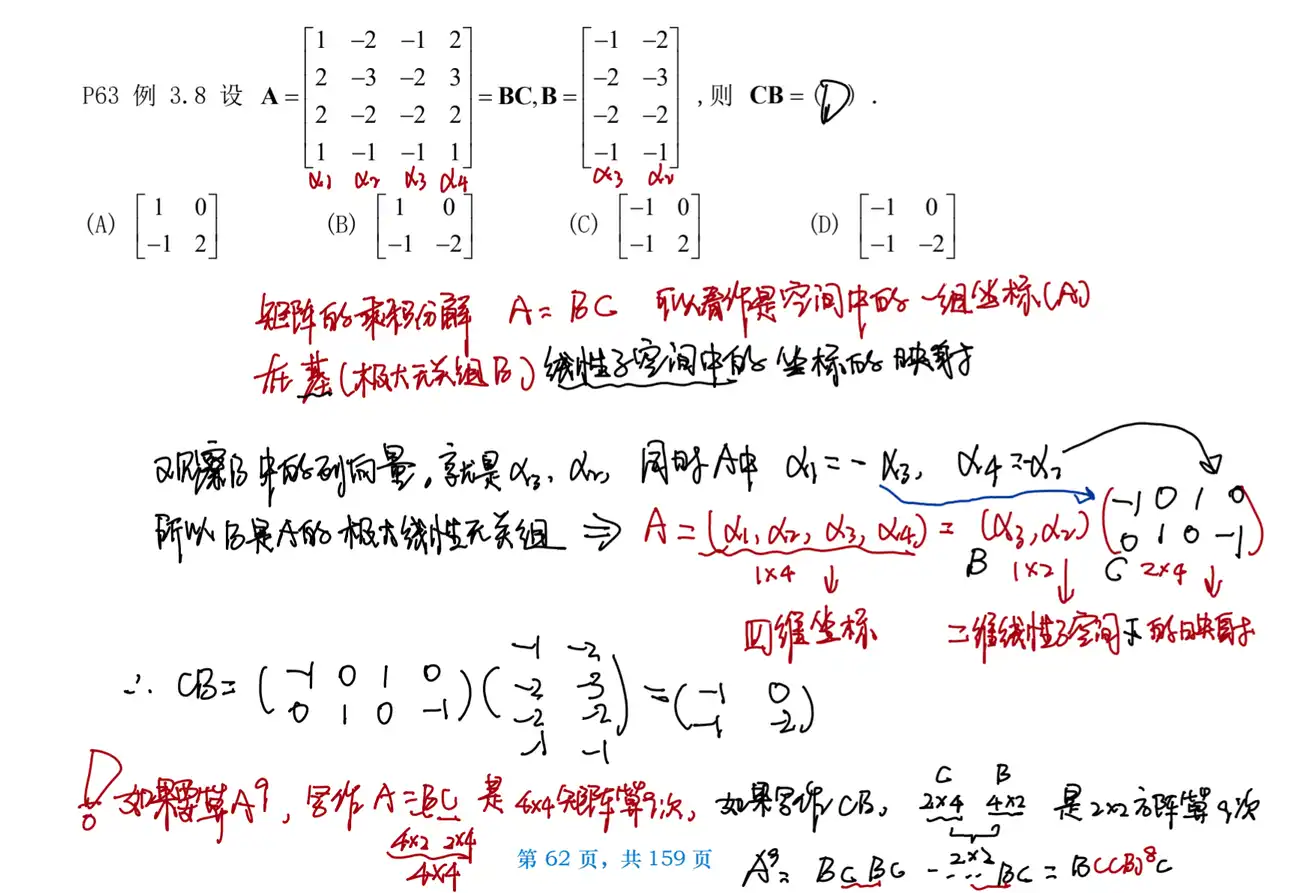 P63 例 3.8 设 A = [1 -2 -1 2; 2 -3 -2 3; 2 -2 -2 2; 1 -1 -1 1] = BC, B = [-1 -2; -2 -3; -2 -2; -1 -1] ,则 CB = (D) .
α1 α2 α3 α4 α3 α2
(A) [1 0; -1 2] (B) [1 0; -1 -2] (C) [-1 0; -1 2] (D) [-1 0; -1 -2]
矩阵的乘积分解 A = BC 可以看作是空间中的一组坐标(A)
在基(极大无关组B)线性子空间中的坐标的映射
观察B中的列向量,就是α3, α2, 同时A中 α1 = -α3, α4 = -α2
所以B是A的极大线性无关组 ⇒ A = (α1, α2, α3, α4) = (α3, α2) (-1 0 1 0; 0 1 0 -1)
1×4 ↓ B 1×2 ↓ C 2×4 ↓
四维坐标 二维线性子空间下的映射
∴ CB = (-1 0 1 0; 0 1 0 -1) (-1 -2; -2 -3; -2 -2; -1 -1) = (-1 0; -1 -2)
如果要算A⁹, 写作 A = BC 是 4×4矩阵算9次, 如果写作CB, 是2×2方阵算9次
C B
2×4 4×2
2×2
4×2 2×4
4×4
A⁹ = BC BC ---- BC = B(CB)⁸C
第 62 页,共 159 页